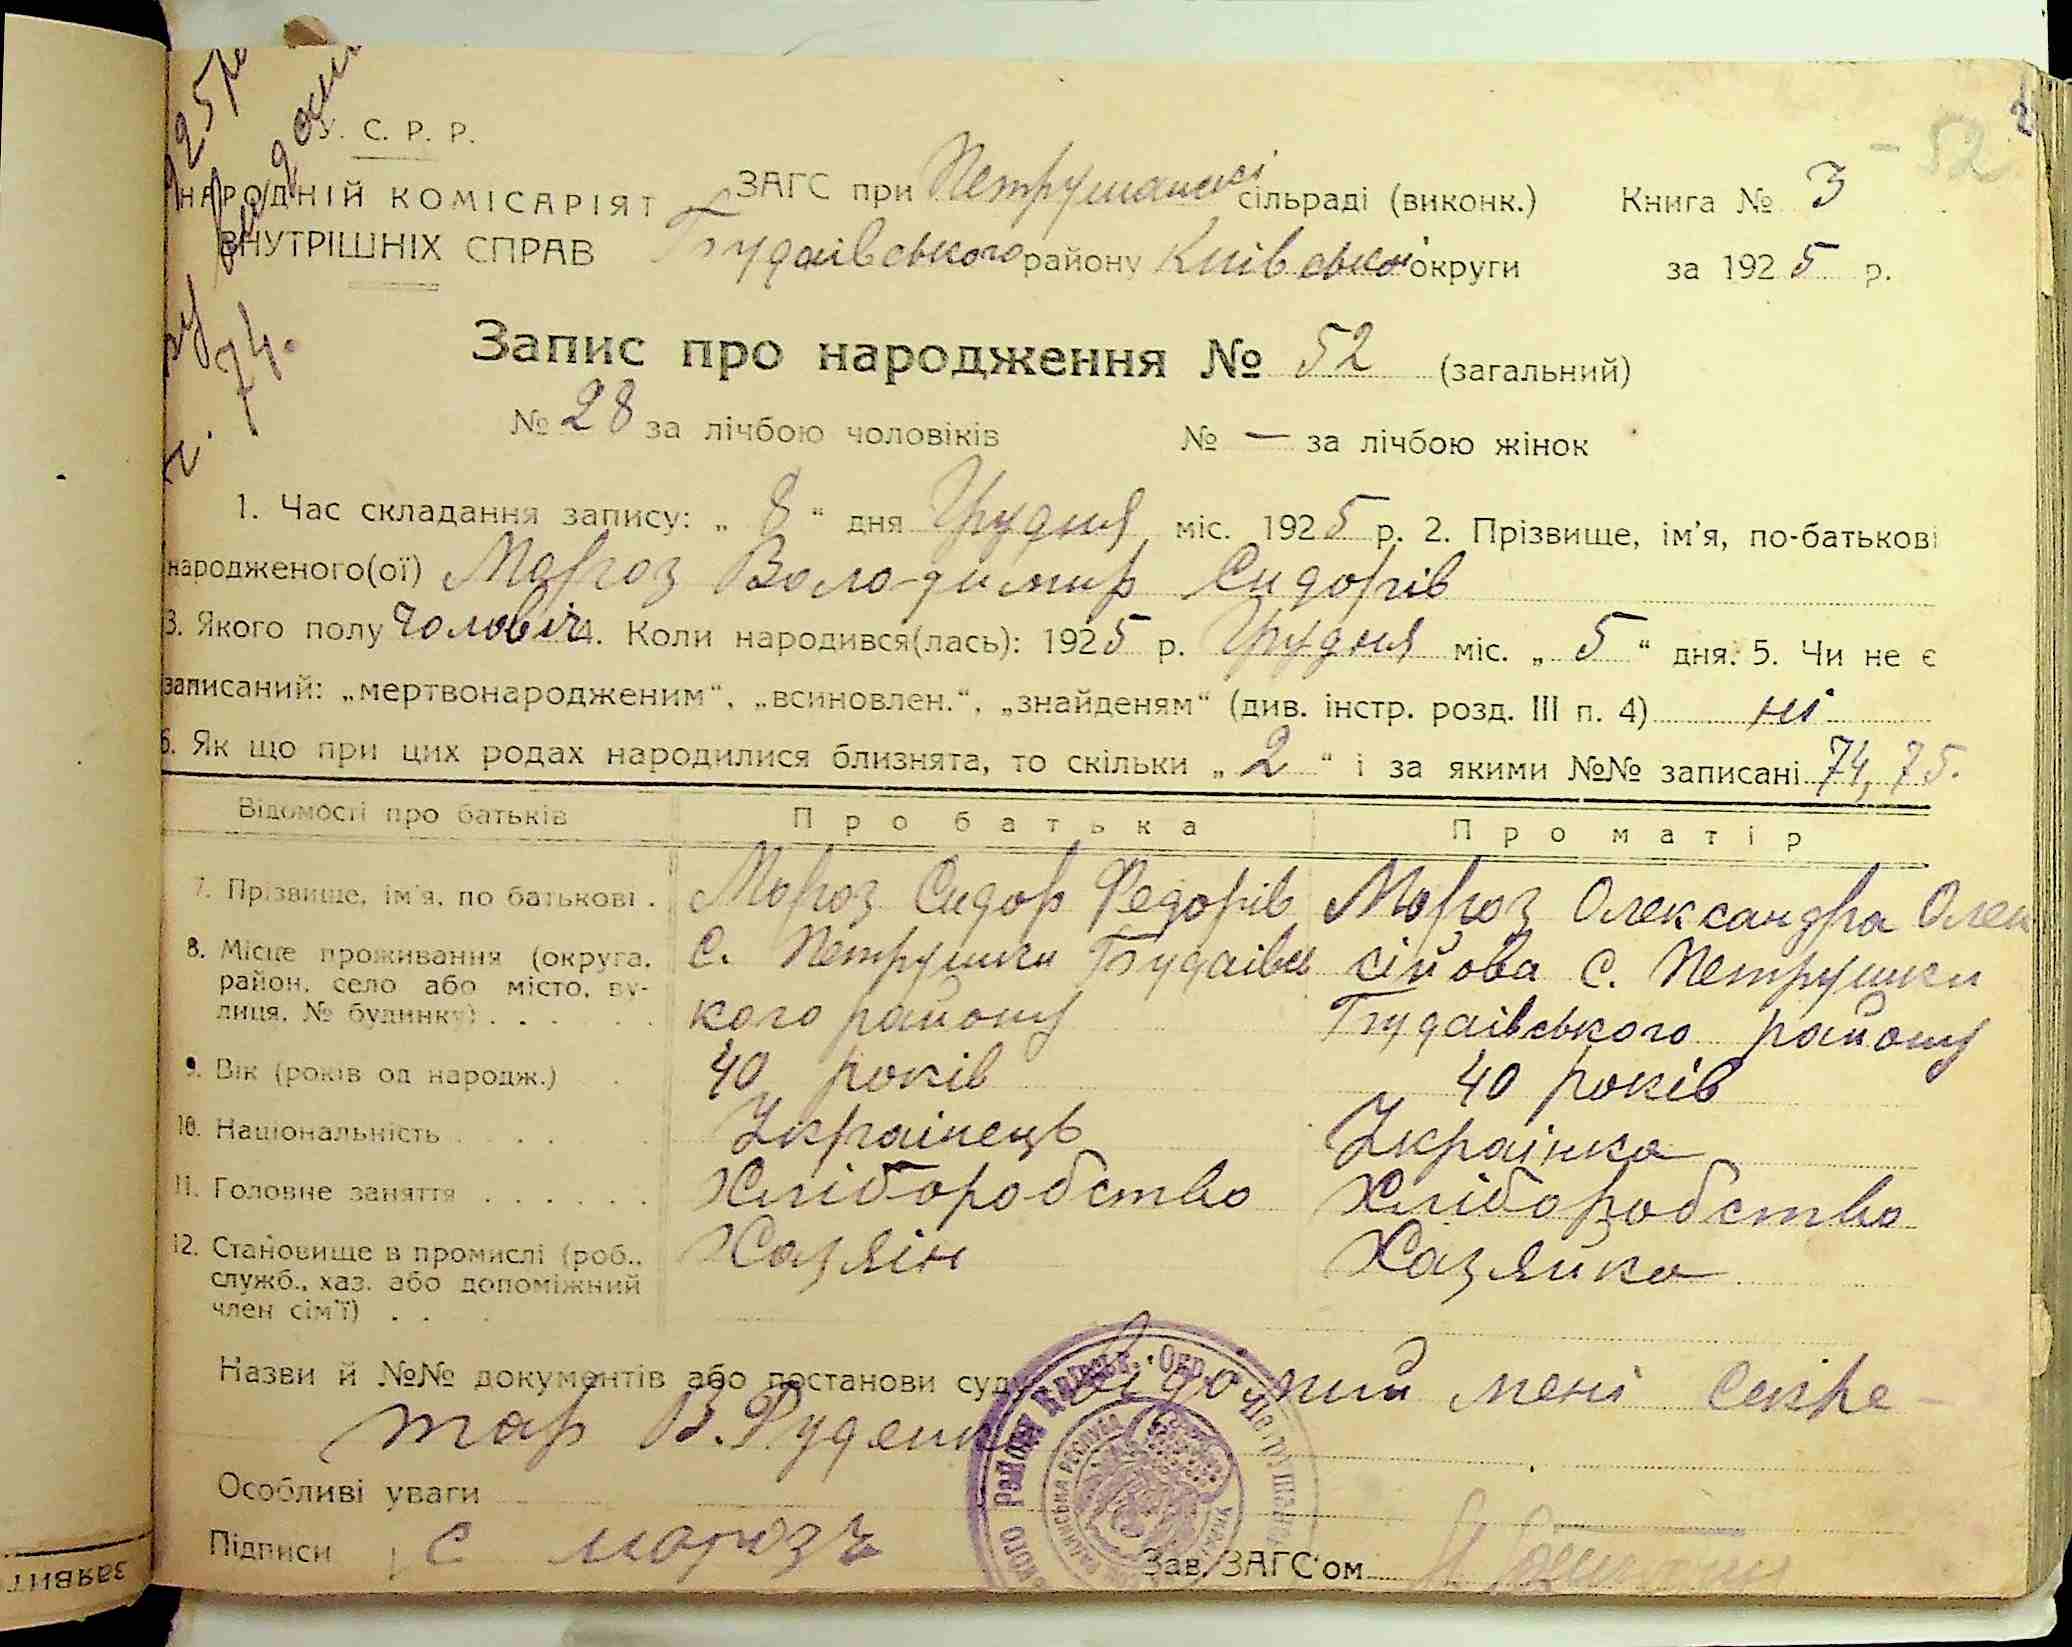 У. С. Р. Р.
НАРОДНІЙ КОМІСАРІЯТ
ВНУТРІШНІХ СПРАВ
ЗАГС при Петрушанскі сільраді (виконк.)
Будаівського району Київської округи
Книга № 3
за 1925 р.
52
Запис про народження № 52 (загальний)
№ 28 за лічбою чоловіків № — за лічбою жінок
74.
1. Час складання запису: „ 8 “ дня Грудня міс. 1925 р. 2. Прізвище, ім'я, по-батькові
народженого(ої) Мороз Володимир Сидорів
3. Якого полу Чоловіч 4. Коли народився(лась): 1925 р. Грудня міс. „ 5 “ дня. 5. Чи не є
записаний: „мертвонародженим“, „всиновлен.“, „знайденям“ (див. інстр. розд. III п. 4) ні
6. Як що при цих родах народилися близнята, то скільки „ 2 “ і за якими №№ записані 74, 75.
Відомості про батьків Про батька Про матір
7. Прізвище, ім'я, по батькові . Мороз Сидор Федорів Мороз Олександра Олек
8. Місце проживання (округа, район, село або місто, вулиця, № будинку) . . . . . . С. Петрушки Будаівсь сійова С. Петрушки
кого району Будаівського району
9. Вік (років од народж.) . 40 років 40 років
10. Національність . . . . Українець Українка
11. Головне заняття . . . . . . Хліборобство Хліборобство
12. Становище в промислі (роб., служб., хаз. або допоміжний член сім'ї) . . Хазяін Хазяйка
Назви й №№ документів або постанови суду Відомий мені секре-
тар В. Руденко
Особливі уваги
Підписи С морозъ Зав. ЗАГС'ом
заявит